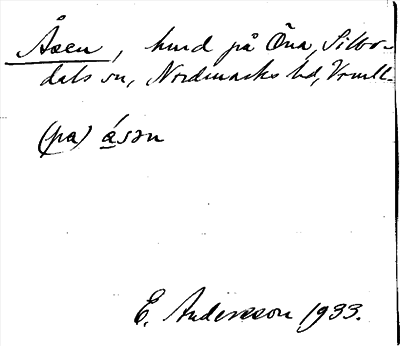 Åsen, hmd på Öna, Silbo-
dals sn, Nordmarks hd, Vrml.
(pa) åsən
E. Andersson 1933.